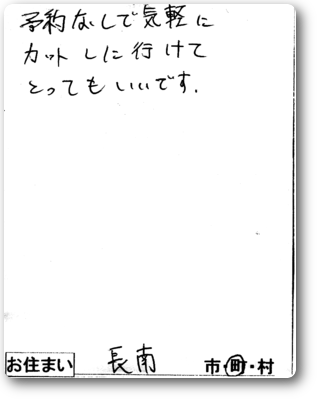 予約なしで気軽に
カットしに行けて
とってもいいです.
お住まい 長南 市・町・村